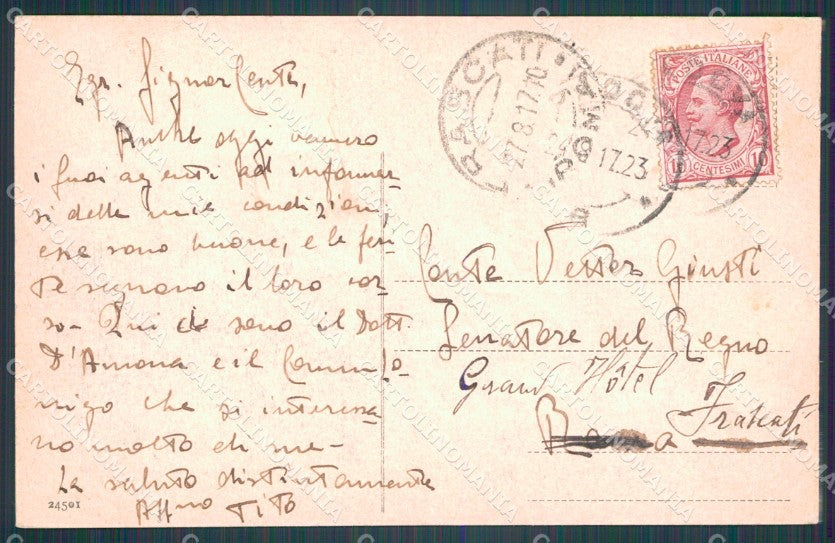 Egr. Signor Conte,
Anche oggi vennero
i suoi agenti ad informar-
si delle mie condizioni,
esse sono buone, e le feri-
te seguono il loro cor-
so - Qui ci sono il Dott.
D'Ancona e il Comm.
che si interessa-
no molto di me -
La saluto distintamente
Affmo Tito
24501
FRASCATI (ROMA)
27.8.17.10
ROMA
17.23
17.23
POSTE ITALIANE
CENTESIMI 10
Conte Vettor Giusti
Senatore del Regno
Grand Hôtel
Roma Frascati
CARTOLINOMANIA